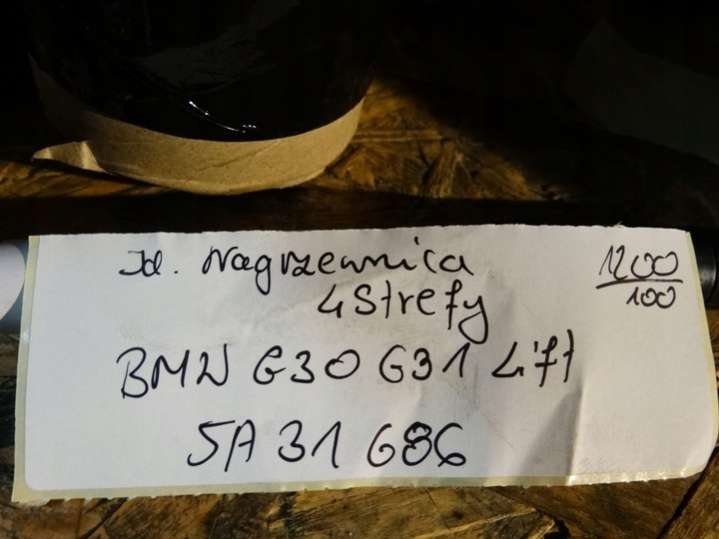 Jd. Nagrzewnica
4 Strefy
1200
100
BMW G30 G31 Lift
5A31686